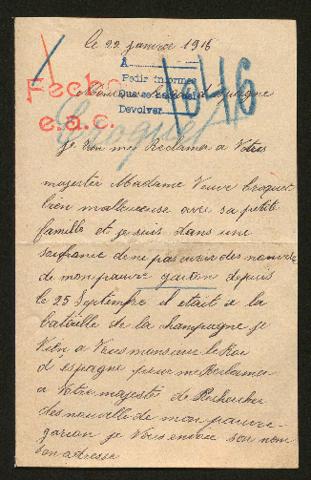 le 22 janvier 1916
A
Pedir informes
Fecho
Devolver
1046
e.a.c.
Croquet
Je vien me Reclamer a Votre
majestée Madame Veuve Croquet
bien malheureuse avec sa petite
famille et je suis dans une
soufrance de ne pas avoir des nouvelle
de mon pauvre garson depuis
le 25 Septembre il était a la
bataille de la champagne je
Vien a Vous monsieur le Roi
d espagne pour me Reclamer
a Votre majesté de Rechercher
des nouvelle de mon pauvre
garson je Vous envoie son nom
son adresse